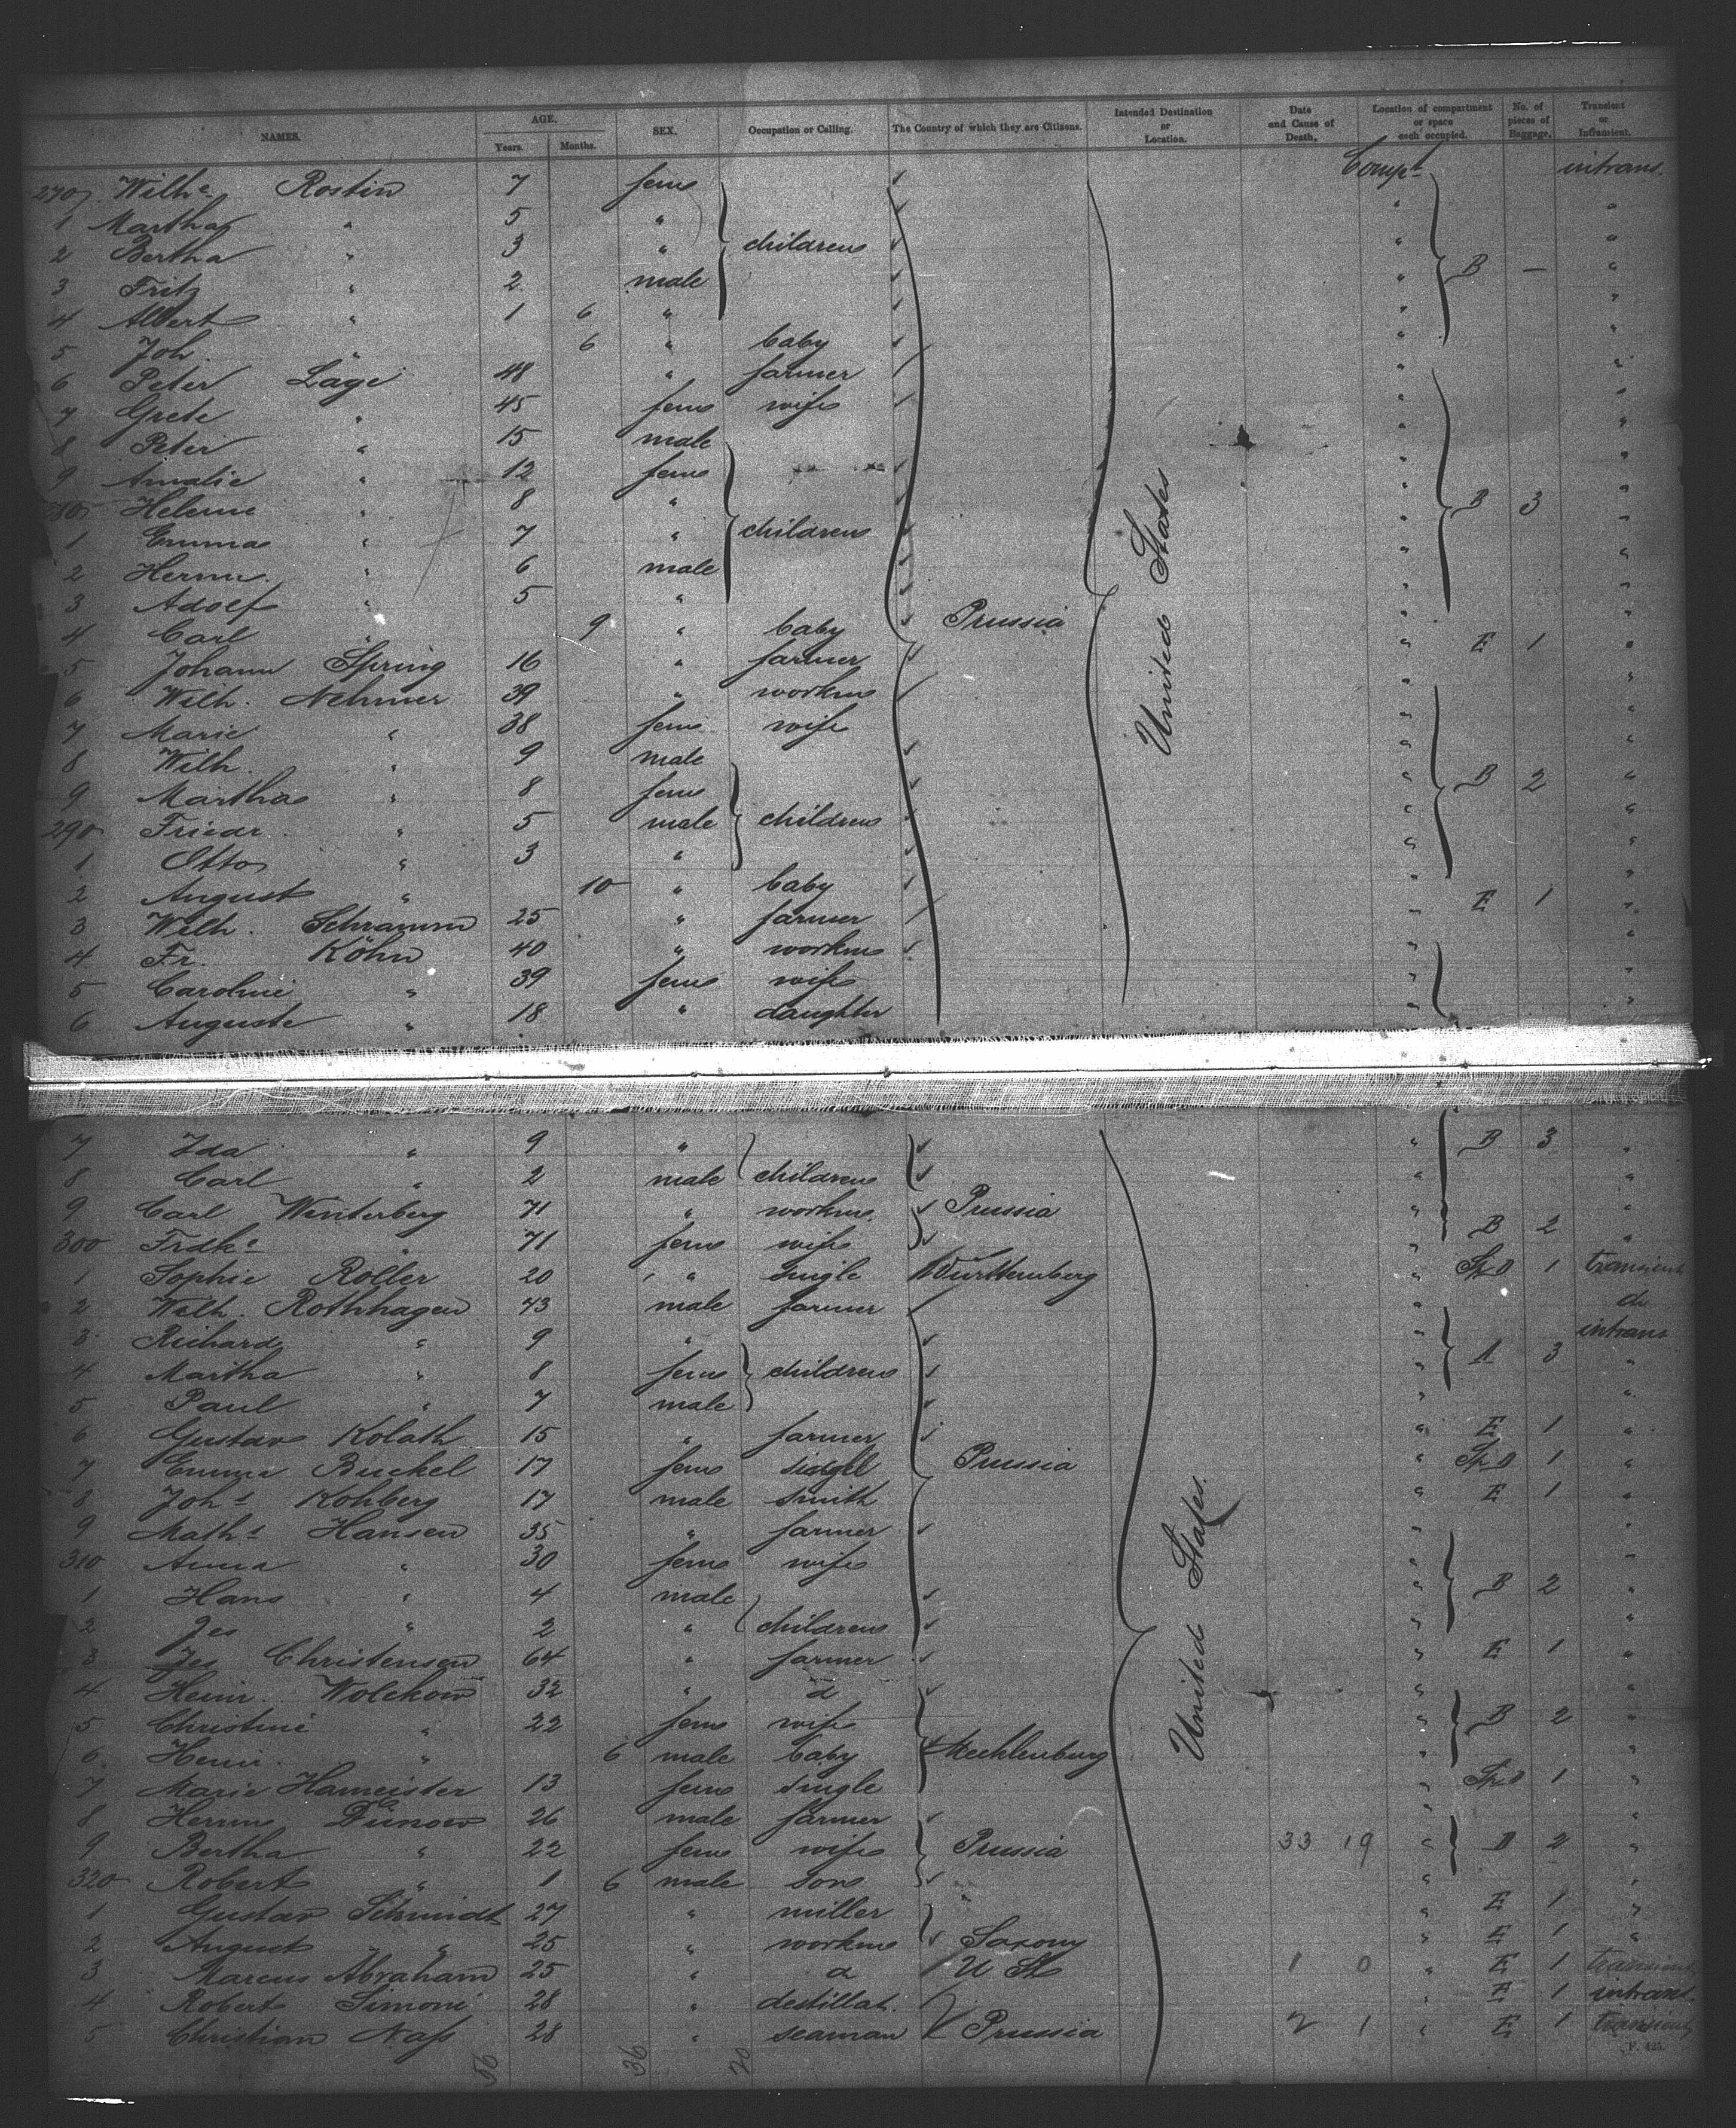 NAMES. AGE. Years. Months. SEX. Occupation or Calling. The Country of which they are Citizens. Intended Destination or Location. Date and Cause of Death. Location of compartment or space each occupied. No. of pieces of Baggage. Transient or Intransient.
270 Wilhe Rostin 7 fem Compt intrans.
1 Martha " 5 " " "
2 Bertha " 3 " children " "
3 Fritz " 2 male " B — "
4 Albert " 1 6 " " "
5 Joh. " 6 " baby " "
6 Peter Lage 48 " farmer "
7 Grete " 45 fem wife " "
8 Peter " 15 male " "
9 Amalie " 12 fem " "
280 Helene " 8 " " B 3 "
1 Emma " 7 " children " "
2 Herm. " 6 male " "
3 Adolf " 5 " " "
4 Carl " 9 " baby Prussia " "
5 Johann Spring 16 " farmer " E 1 "
6 Wilh. Nehmer 39 " workm United States " "
7 Marie " 38 fem wife " "
8 Wilh. " 9 male " "
9 Martha " 8 fem " B 2 "
290 Friedr. " 5 male children " "
1 Otto " 3 " " "
2 August " 10 " baby " "
3 Wilh. Schramm 25 " farmer " E 1 "
4 Fr. Köhn 40 " workm " "
5 Caroline " 39 fem wife " "
6 Auguste " 18 " daughter " "
7 Ida " 9 " " B 3 "
8 Carl " 2 male children " "
9 Carl Winterberg 71 " workm. Prussia " "
300 Frdke " 71 fem wife " B 2 "
1 Sophie Roller 20 " single Württemberg " Sp. D 1 transient
2 Wilh. Rothhagen 43 male farmer " do
3 Richard " 9 " " intrans
4 Martha " 8 fem children " A 3 "
5 Paul " 7 male " "
6 Gustav Kolath 15 " farmer " E 1 "
7 Emma Buckel 17 fem single Prussia " Sp. D 1 "
8 Johs Kohberg 17 male smith " E 1 "
9 Maths Hansen 35 " farmer " "
310 Anna " 30 fem wife " "
1 Hans " 4 male " B 2 "
2 Jes " 2 " children " "
3 Jes Christensen 64 " farmer " E 1 "
4 Heinr. Wolckow 32 " d United States. " "
5 Christine " 22 fem wife " B 2 "
6 Heinr. " 6 male baby Mecklenburg " "
7 Marie Hameister 13 fem single " Sp. D 1 "
8 Herm Dünow 26 male farmer " "
9 Bertha " 22 fem wife Prussia 33 19 " D 2 "
320 Robert " 1 6 male son " "
1 Gustav Schmidt 27 " miller " " E 1 "
2 August " 25 " workm Saxony " E 1 "
3 Marcus Abraham 25 " d U St 1 0 " E 1 transient
4 Robert Simoni 28 " destillat. " E 1 intrans.
5 Christian Naß 28 " seaman Prussia 2 1 " E 1 transient
56 36 20